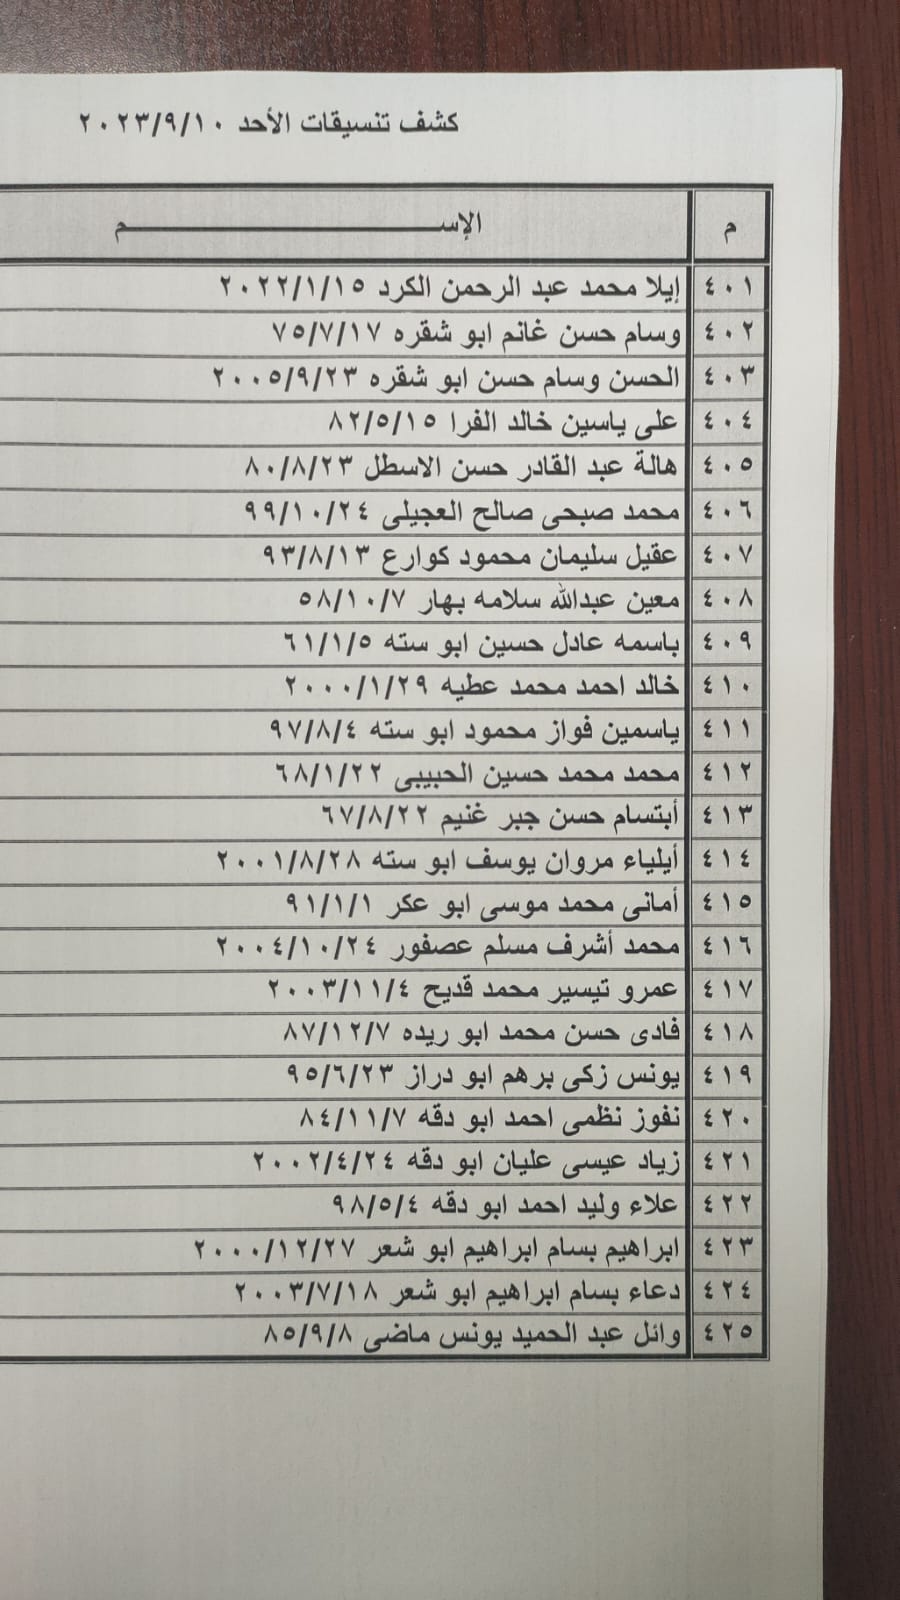 كشف تنسيقات الأحد ٢٠٢٣/٩/١٠
م الإســـــــــــــــــم
٤٠١ إيلا محمد عبد الرحمن الكرد ٢٠٢٢/١/١٥
٤٠٢ وسام حسن غانم ابو شقره ٧٥/٧/١٧
٤٠٣ الحسن وسام حسن ابو شقره ٢٠٠٥/٩/٢٣
٤٠٤ على ياسين خالد الفرا ٨٢/٥/١٥
٤٠٥ هالة عبد القادر حسن الاسطل ٨٠/٨/٢٣
٤٠٦ محمد صبحى صالح العجيلى ٩٩/١٠/٢٤
٤٠٧ عقيل سليمان محمود كوارع ٩٣/٨/١٣
٤٠٨ معين عبدالله سلامه بهار ٥٨/١٠/٧
٤٠٩ باسمه عادل حسين ابو سته ٦١/١/٥
٤١٠ خالد احمد محمد عطيه ٢٠٠٠/١/٢٩
٤١١ ياسمين فواز محمود ابو سته ٩٧/٨/٤
٤١٢ محمد محمد حسين الحبيبى ٦٨/١/٢٢
٤١٣ أبتسام حسن جبر غنيم ٦٧/٨/٢٢
٤١٤ أيلياء مروان يوسف ابو سته ٢٠٠١/٨/٢٨
٤١٥ أمانى محمد موسى ابو عكر ٩١/١/١
٤١٦ محمد أشرف مسلم عصفور ٢٠٠٤/١٠/٢٤
٤١٧ عمرو تيسير محمد قديح ٢٠٠٣/١١/٤
٤١٨ فادى حسن محمد ابو ريده ٨٧/١٢/٧
٤١٩ يونس زكى برهم ابو دراز ٩٥/٦/٢٣
٤٢٠ نفوز نظمى احمد ابو دقه ٨٤/١١/٧
٤٢١ زياد عيسى عليان ابو دقه ٢٠٠٢/٤/٢٤
٤٢٢ علاء وليد احمد ابو دقه ٩٨/٥/٤
٤٢٣ ابراهيم بسام ابراهيم ابو شعر ٢٠٠٠/١٢/٢٧
٤٢٤ دعاء بسام ابراهيم ابو شعر ٢٠٠٣/٧/١٨
٤٢٥ وائل عبد الحميد يونس ماضى ٨٥/٩/٨